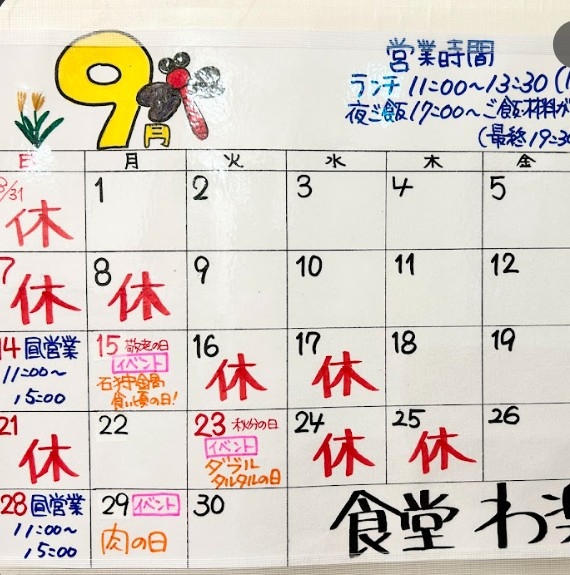 9月
営業時間
ランチ 11:00〜13:30
夜ご飯 17:00〜ご飯材料が
(最終19:30
日 月 火 水 木 金
8/31 休 1 2 3 4 5
7 休 8 休 9 10 11 12
14 昼営業 11:00〜 15:00
15 敬老の日 イベント 石狩金曷 食い頃の日!
16 休 17 休 18 19
21 休 22
23 秋分の日 イベント ダブル タルタルの日
24 休 25 休 26
28 昼営業 11:00〜 15:00
29 イベント 肉の日
30
食堂 わ